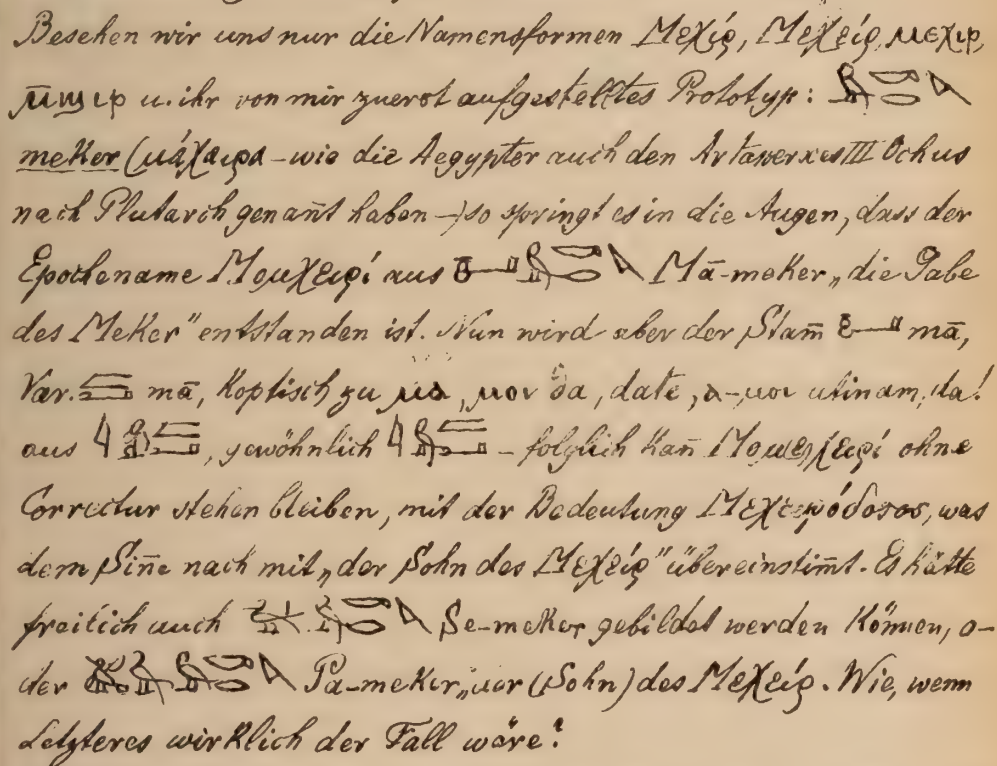 Besehen wir uns nur die Namensformen Μεχίρ, Μεχείρ, ⲙⲉⲭⲓⲣ,
ⲙ̄ϣⲓⲣ u. ihr von mir zuerst aufgestelltes Prototyp:
meker (μάχαιρα – wie die Aegypter auch den Artaxerxes III Ochus
nach Plutarch genan̄t haben –) so springt es in die Augen, dass der
Epochename Μουχειρί aus Mā-meker „die Gabe
des Meker" entstanden ist. Nun wird aber der Stam̄ mā,
Var. mā, Koptisch zu ⲙⲁ, ⲙⲟⲓ da, date, ⲁ-ⲙⲟⲓ utinam, da!
aus , gewöhnlich – folglich kan̄ ohne
Correctur stehen bleiben, mit der Bedeutung was
dem Sin̄e nach mit „der Sohn des Μεχείρ" übereinstim̄t. Es hätte
freilich auch Se-meker gebildet werden können, o-
der Pa-meker „der (Sohn) des Μεχείρ. Wie, wenn
Letzteres wirklich der Fall wäre?